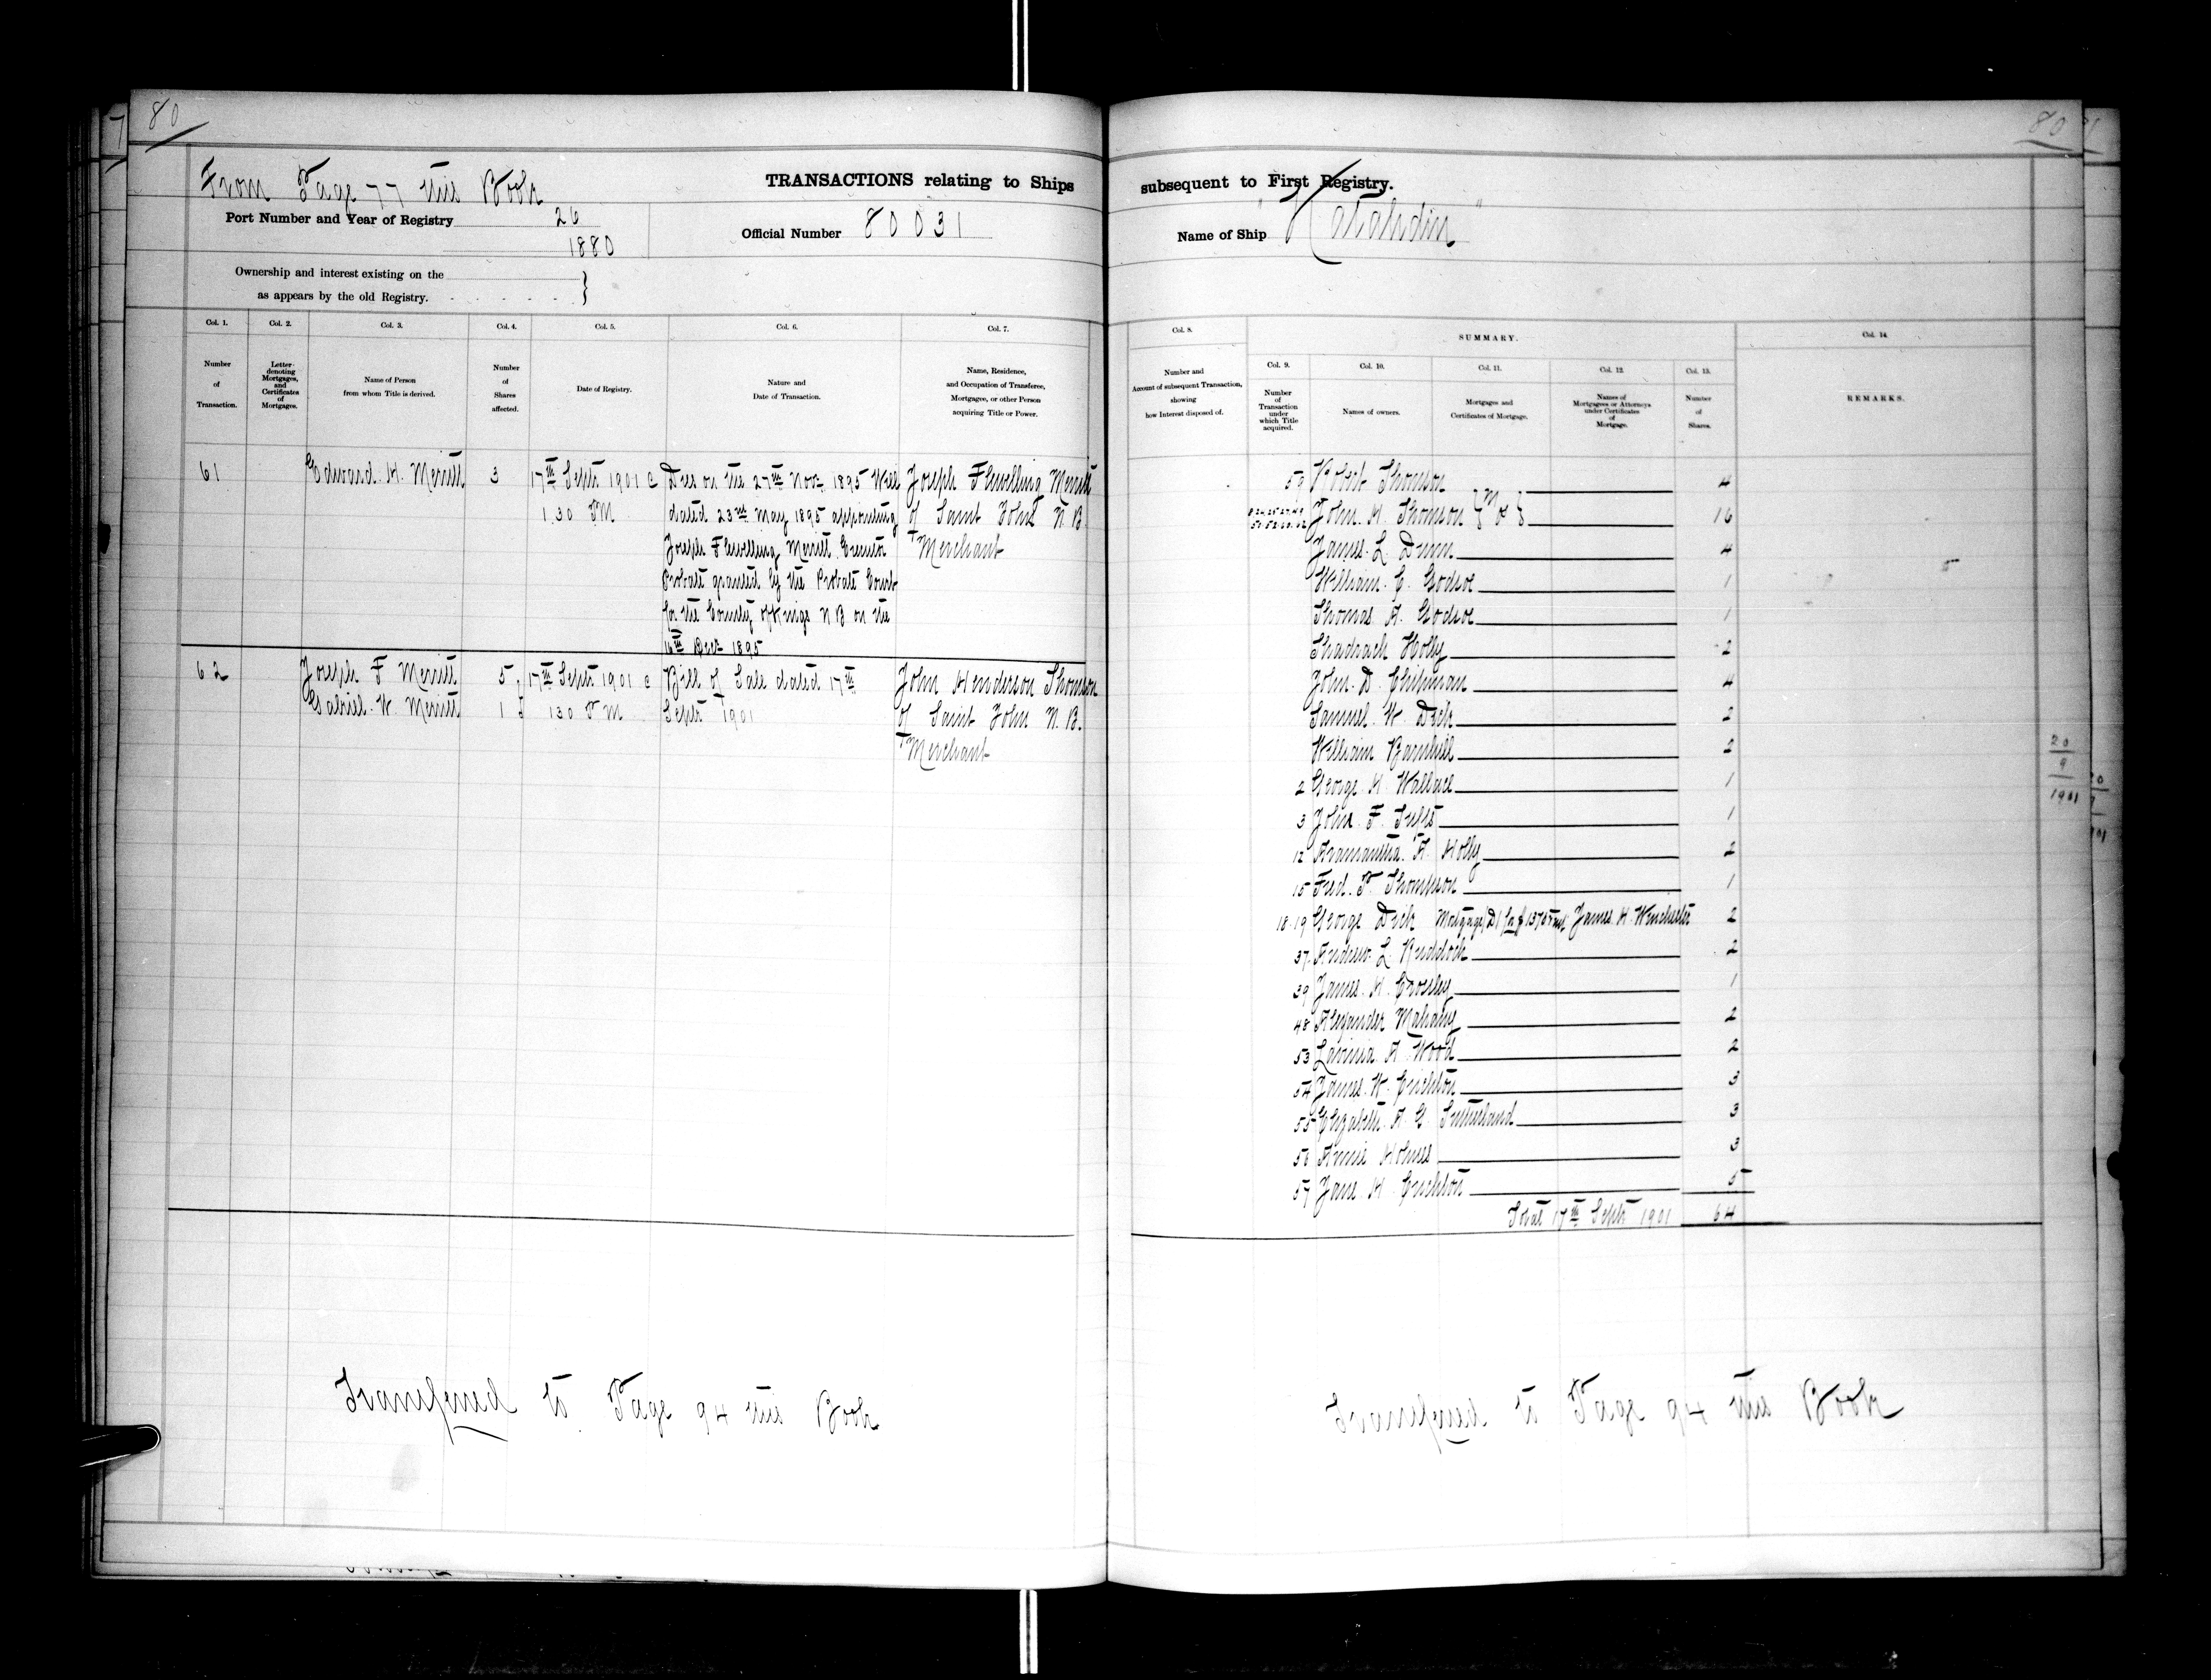 80
From Page 77 this Book
TRANSACTIONS relating to Ships
Port Number and Year of Registry 26
1880
Official Number 80031
Ownership and interest existing on the
as appears by the old Registry.
Col. 1.
Number
of
Transaction.
Col. 2.
Letter
denoting
Mortgages,
and
Certificates
of
Mortgages.
Col. 3.
Name of Person
from whom Title is derived.
Col. 4.
Number
of
Shares
affected.
Col. 5.
Date of Registry.
Col. 6.
Nature and
Date of Transaction.
Col. 7.
Name, Residence,
and Occupation of Transferee,
Mortgagee, or other Person
acquiring Title or Power.
61
Edward. H. Merritt
3
17th Sept 1901 @
1.30 PM
Dies on the 27th Novr 1895 Will
dated 23rd May 1895 appointing
Joseph Flewelling Merritt Executor
Probate granted by the Probate Court
for the County of Kings N B on the
Decr 1895
Joseph Flewelling Merritt
of Saint John N B
Merchant
62
Joseph F Merritt
Gabriel. W. Merritt
5
1
17th Sept 1901 @
130 PM
Bill of Sale dated 17th
Sept 1901
John Henderson Thomson
of Saint John N. B.
Merchant
Transferred to Page 94 this Book
80
subsequent to First Registry.
Name of Ship "Katahdin"
Col. 8.
Number and
Account of subsequent Transaction,
showing
how Interest disposed of.
SUMMARY.
Col. 9.
Number
of
Transaction
under
which Title
acquired.
Col. 10.
Names of owners.
Col. 11.
Mortgages and
Certificates of Mortgage.
Col. 12.
Names of
Mortgagees or Attorneys
under Certificates
of
Mortgage.
Col. 13.
Number
of
Shares.
Col. 14.
REMARKS.
59 Robert Thomson 4
John. H. Thomson M O 16
James. L. Dunn 4
William. C. Godsoe 1
Thomas. A. Godsoe 1
Shadrach Holly 2
John. D. Chipman 4
Samuel. W. Dick 2
William Barnhill 2
2 George. H. Wallace 1
3 John. F. Tufts 1
12 Aramantha. A. Holly 2
15 Fred. P. Thompson 1
18.19 George Dick Mortgage James. H. Winchester 2
37. Andrew. L. Ruddock 2
39 James. H. Crossley 1
48 Alexander Mahany 2
53 Lavinia. A. Wood 2
54 James. W. Crichton 3
55 Elizabeth. A. G. Sutherland 3
56 Annie Holmes 3
57 Jane. H. Crichton 5
Total 17th Sept 1901 64
20
9
1901
Transferred to Page 94 this Book